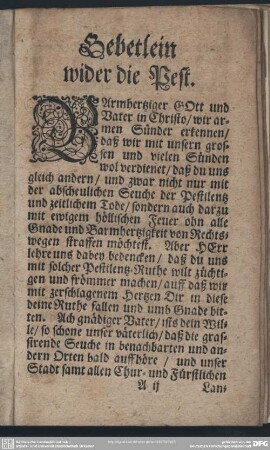 Gebetlein
wider die Pest.
BArmhertziger GOtt und
Vater in Christo / wir ar-
men Sünder erkennen /
daß wir mit unsern gros-
sen und vielen Sünden
wol verdienet / daß du uns
gleich andern / und zwar nicht nur mit
der abscheulichen Seuche der Pestilentz
und zeitlichem Tode / sondern auch darzu
mit ewigem höllischen Feuer ohn alle
Gnade und Barmhertzigkeit von Rechts-
wegen straffen möchtest. Aber HErr
lehre uns dabey bedencken / daß du uns
mit solcher Pestilentz-Ruthe wilt züchti-
gen und frömmer machen / auff daß wir
mit zerschlagenem Hertzen Dir in diese
deine Ruthe fallen und umb Gnade bit-
ten. Ach gnädiger Vater / ists dein Wil-
le / so schone unser väterlich / daß die gras-
sirende Seuche in benachbarten und an-
dern Orten bald auffhöre / und unser
Stadt samt allen Chur- und Fürstlichen
A ij Lan-